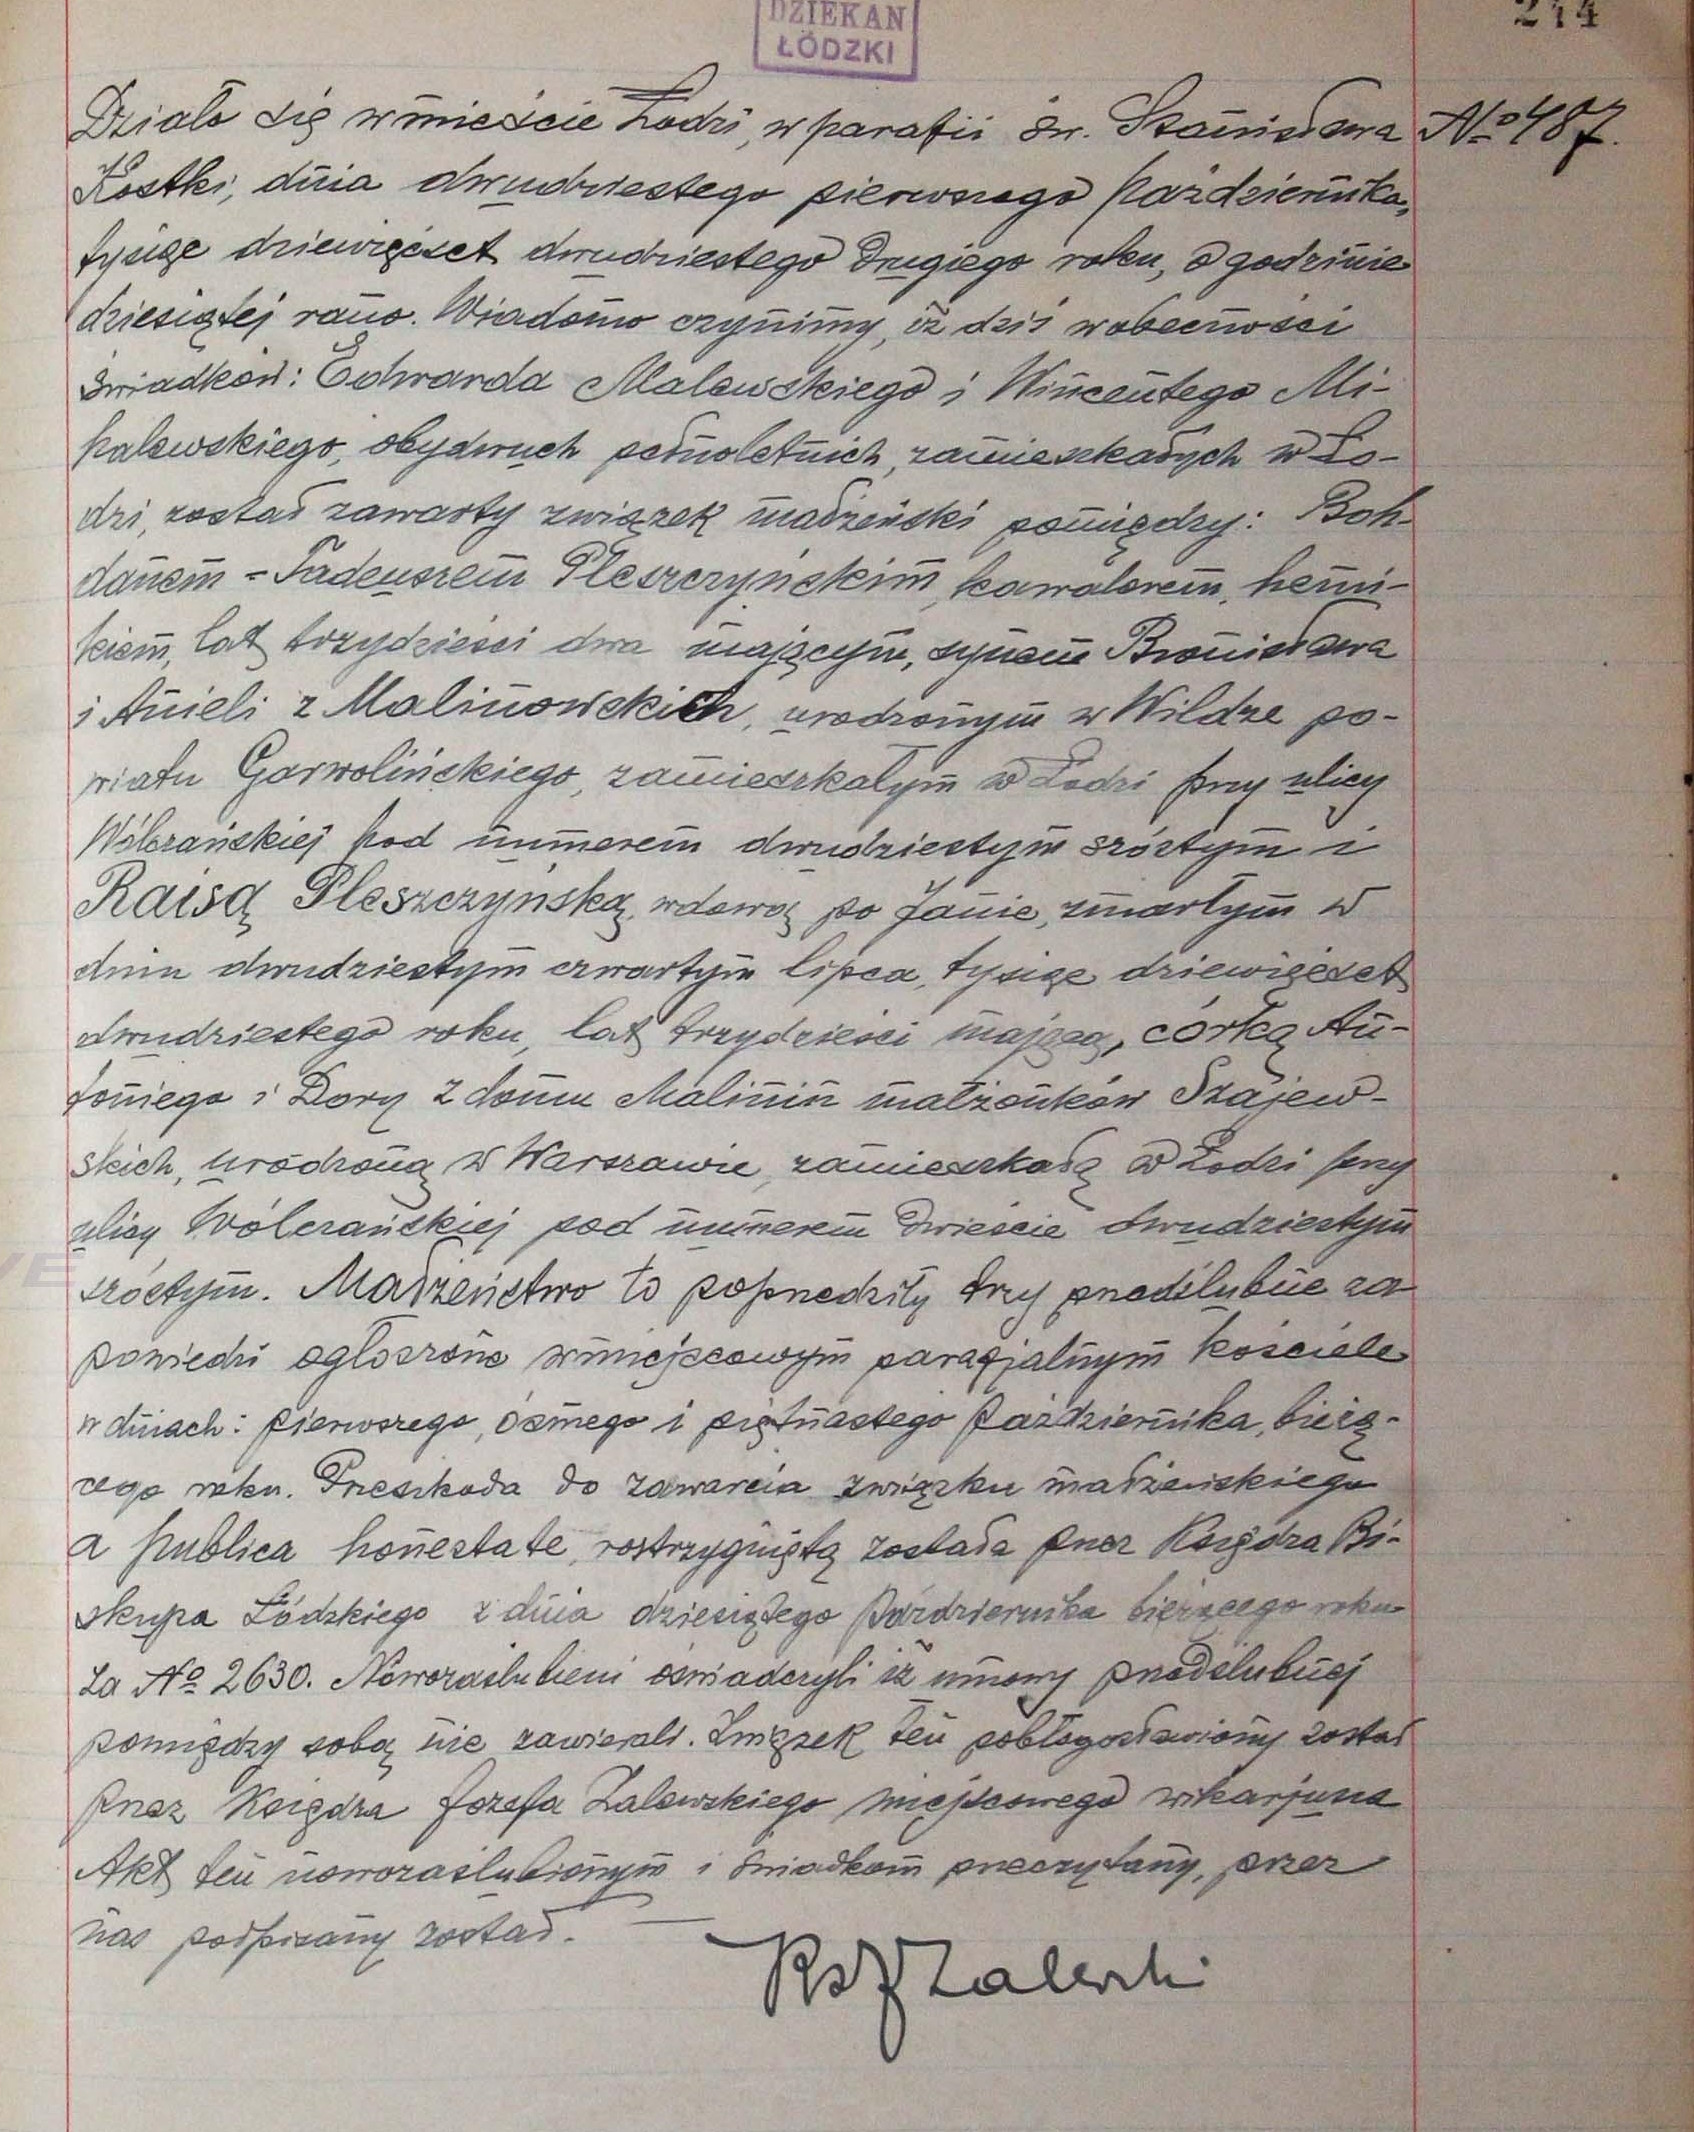 DZIEKAN
ŁÓDZKI
244
Działo się w mieście Łodzi, w parafii św. Stanisława No 487.
Kostki, dnia dwudziestego pierwszego października,
tysiąc dziewięćset dwudziestego drugiego roku, o godzinie
dziesiątej rano. Wiadomo czynimy, iż dziś w obecności
świadków: Edwarda Malewskiego i Wincentego Mi-
kalewskiego, obydwuch pełnoletnich, zamieszkałych w Ło-
dzi, został zawarty związek małżeński pomiędzy: Boh-
danem - Tadeuszem Pleszczyńskim, kawalerem, hemi-
kiem, lat trzydzieści dwa mającym, synem Bronisława
i Anieli z Malinowskich, urodzonym w Wildze po-
wiatu Garwolińskiego, zamieszkałym w Łodzi przy ulicy
Wólczańskiej pod numerem dwudziestym szóstym i
Raisą Pleszczyńską, wdową po Janie, zmarłym w
dniu dwudziestym czwartym lipca, tysiąc dziewięćset
dwudziestego roku, lat trzydzieści mającą, córką An-
toniego i Dory z domu Malinin małżonków Szajew-
skich, urodzoną w Warszawie, zamieszkałą w Łodzi przy
ulicy Wólczańskiej pod numerem dwieście dwudziestym
szóstym. Małżeństwo to poprzedziły trzy przedślubne za
powiedzi ogłoszone w miejscowym parafjalnym kościele
w dniach: pierwszego, ósmego i piętnastego października, bieżą-
cego roku. Przeszkoda do zawarcia związku małżeńskiego
a publica honestate, rostrzygniętą została przez Księdza Bi-
skupa Łódzkiego z dnia dziesiątego października bieżącego roku
za No 2630. Nowozaślubieni oświadczyli iż umowy przedślubnej
pomiędzy sobą nie zawierali. Związek ten pobłogosławiony został
przez Księdza Józefa Zalewskiego miejscowego wikarjusza
Akt ten nowozaślubionym i świadkom przeczytany, przez
nas podpisany został.
Ks J Zalewski